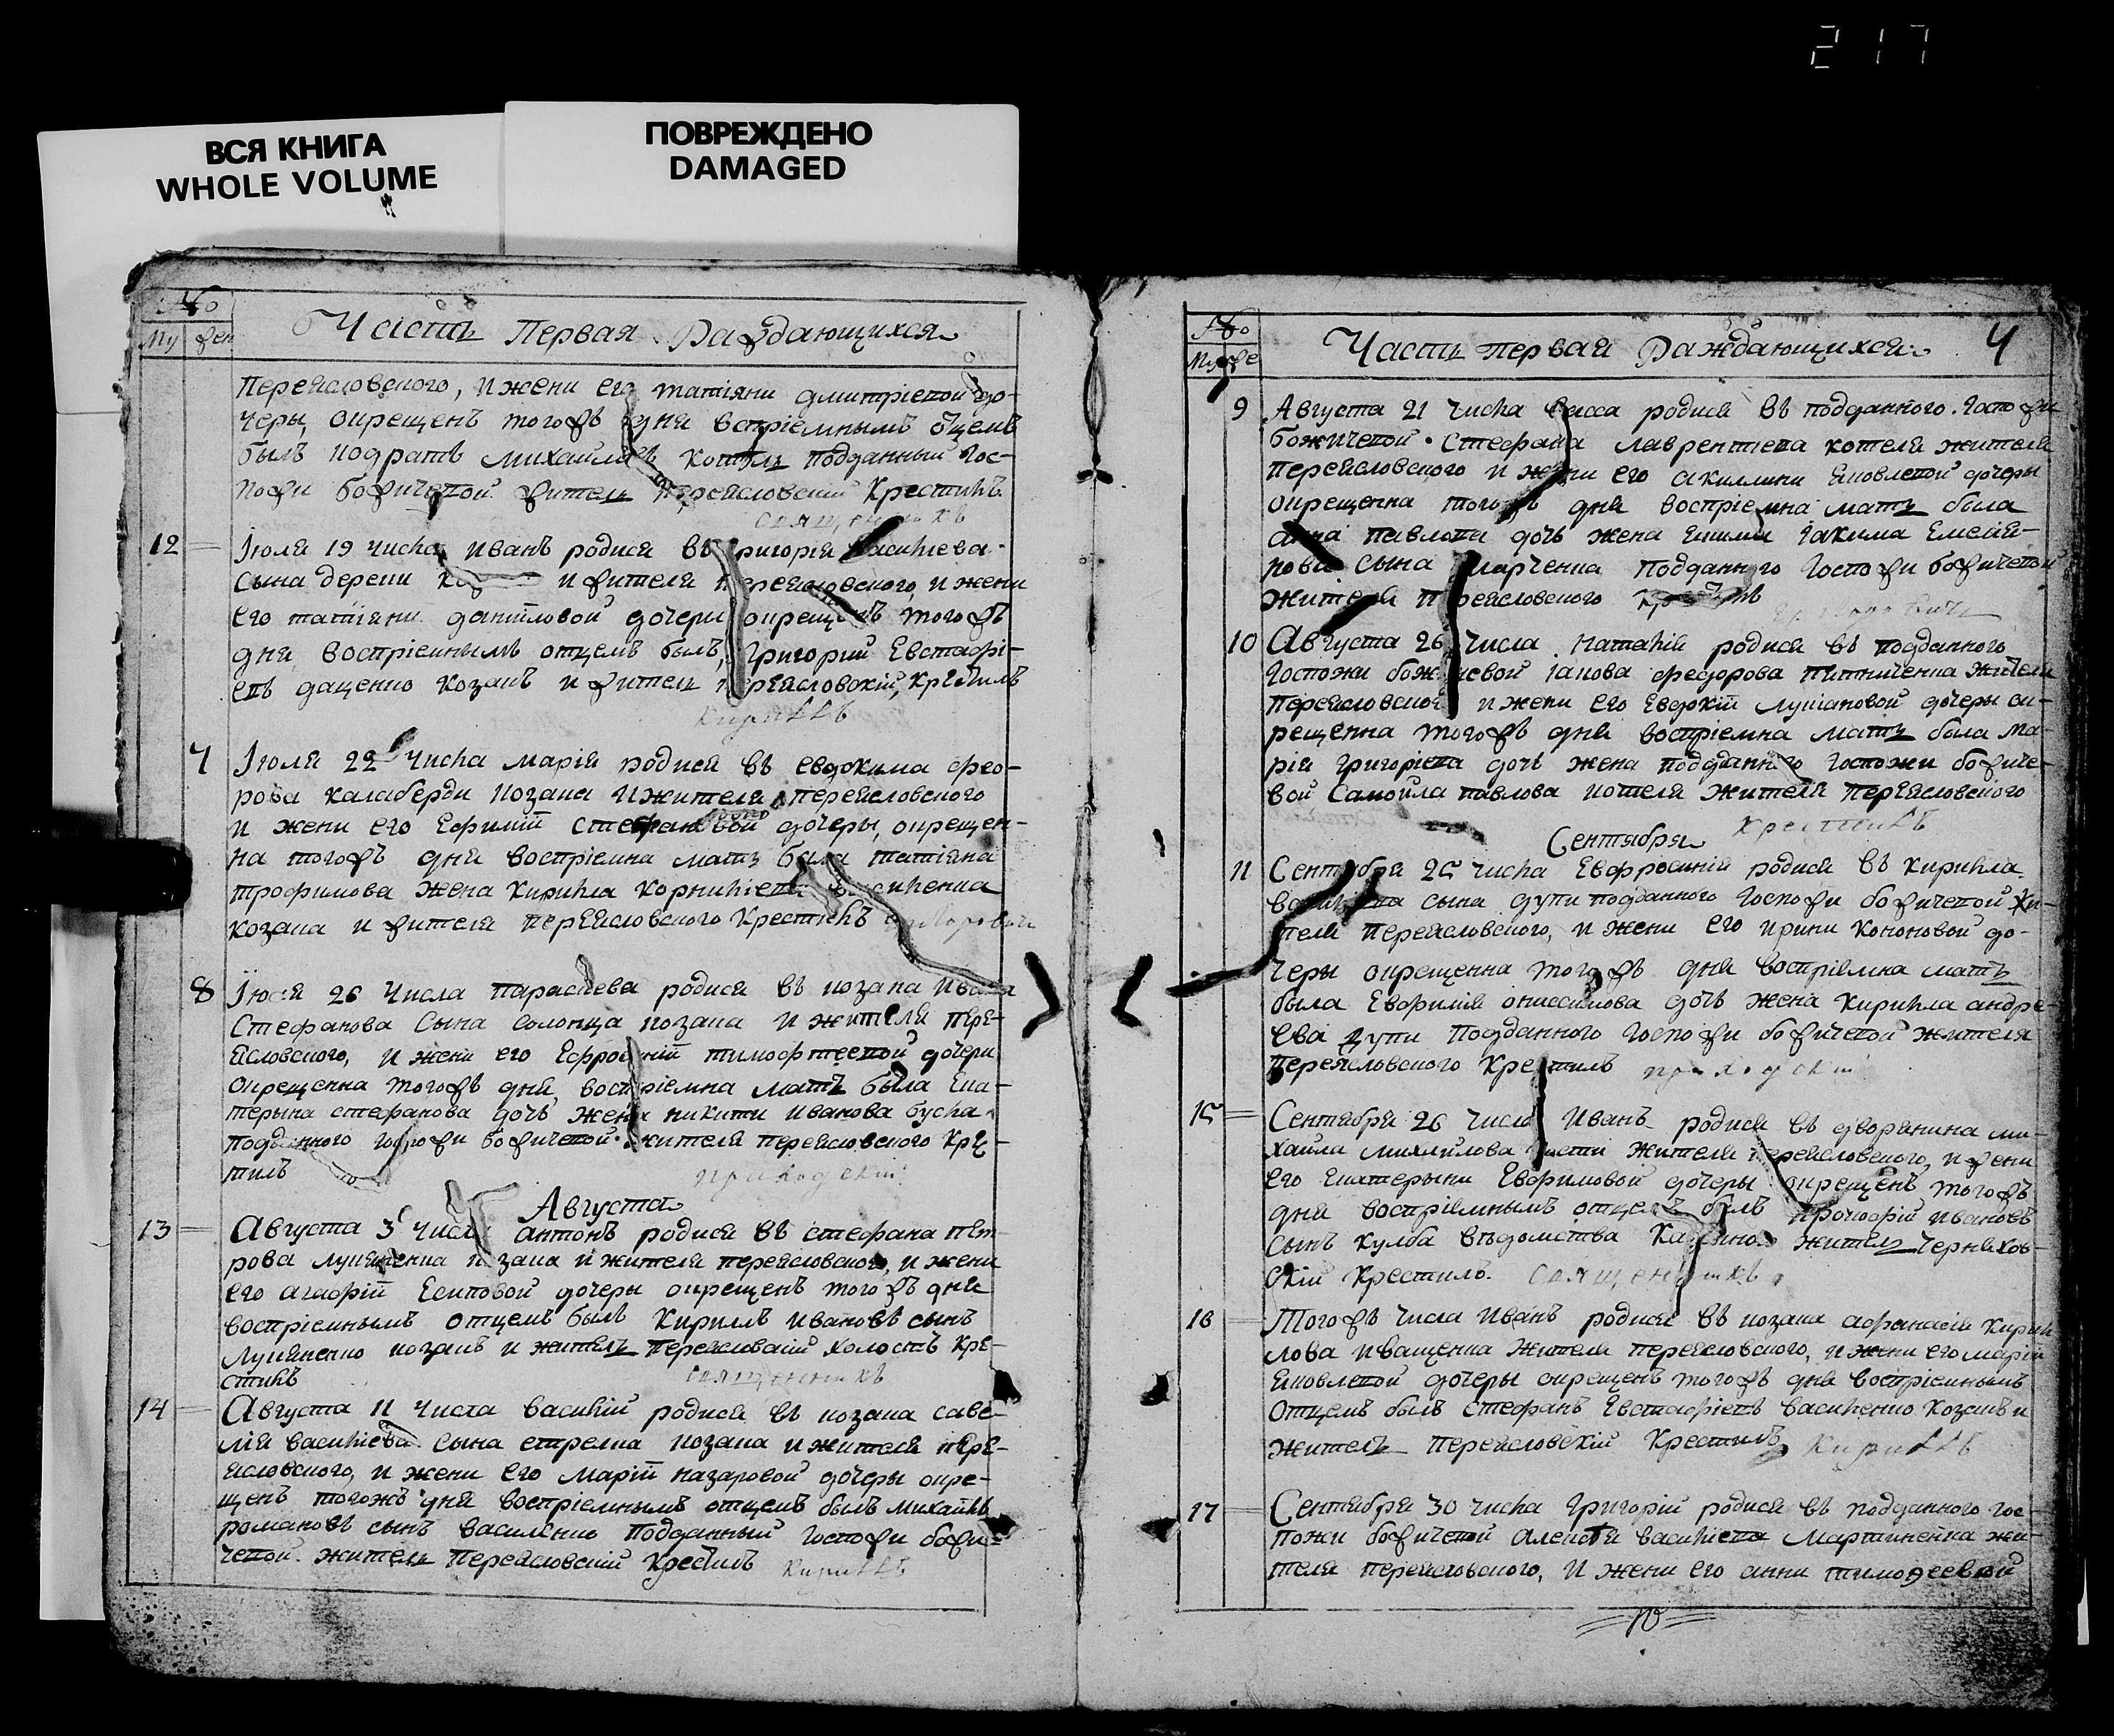 217
ВСЯ КНИГА
WHOLE VOLUME
ПОВРЕЖДЕНО
DAMAGED
Часть Первая Раждающихся
Му жен
Переясловского, и жени его татіяни дмитріевой до-
черы, окрещенъ того жъ дня встріемнымъ отцемъ
былъ Кодратъ Михайловъ подданный Гос-
пожи божичевой житель Переясловскій Крестилъ
священникъ
12 Іюля 19 числа иванъ родися въ григорія василіева
сына и жителя переясловского, и жени
его татіяни даніиловой дочери окрещенъ того жъ
дня воспріемнымъ отцемъ былъ, григорий Евстафі-
евъ даценко козакъ и житель переясловскій, крестилъ
Кириллъ
7 Іюля 22 числа марія родися въ евдокима фео-
рова калаберди козака и жителя переясловского
и жени его Ефиміи стефановой дочеры, окрещен-
на того жъ дня воспріемна мать была татіяна
трофимова жена кирила корниліева
козака и жителя переясловского крестилъ
8 Іюля 26 числа параскева родися въ козака Ивана
Стефанова сына солонца козака и жителя пере-
ясловского, и жени его Ефросиніи тимофтеевой дочери
окрещенна того жъ дня, воспріемна мать была Ека-
терына стефанова дочь жена никити иванова бусла
подданного госпожи божичевой жителя переясловского кре-
тилъ приходскій
Августа
13 Августа 3 числа антонъ родися въ стефана пет-
рова лукяненка козака и жителя переясловского, и жени
его агафіи Есиповой дочеры окрещенъ того жъ дня
воспріемнымъ отцемъ былъ Кирилъ ивановъ сынъ
Лукяненко козакъ и житель Переясловскій холостъ кре-
стилъ священникъ
14 Августа 11 числа василій родися въ козака саве-
лія василіева сына стрелка козака и жителя пере-
ясловского, и жени его маріи назаровой дочеры окре-
щенъ тогожъ дня воспріемнымъ отцемъ былъ михайлъ
романовъ сынъ василенко подданный госпожи божи-
чевой житель Переясловскій крестилъ Кириллъ
Часть первая Раждающихся 4
9 Августа 21 числа васса родися въ подданного Госпожи
божичевой стефана лаврентиева котеля жителя
переясловского и жени его акилини Яковлевой дочеры
окрещенна того жъ дня воспріемна мать была
анна павлова дочь жена Іакима Емелія-
нова сына марченка подданного госпожи божичевой
жителя переясловского
10 Августа 26 числа наталія родися въ подданного
Госпожи божичевой Іакова федорова жителя
переясловского и жени его Евдокіи Лукіановой дочеры ок-
рещенна того жъ дня воспріемна мать была ма-
рія григоріева дочь жена подданного госпожи божиче-
вой самойла павлова котеля жителя переясловского
Крестилъ
Сентября
11 Сентября 25 числа Евфросинія родися въ кирила
сына дупи подданного госпожи божичевой жи-
теля переясловского, и жени его ирини кононовой до-
черы окрещенна того жъ дня воспріемна мать
была Евфимія онисимова дочь жена кирила андре-
ева дупи подданного госпожи божичевой жителя
переясловского Крестилъ приходскій
15 Сентября 26 числа Иванъ родися въ дворянина ми-
хаила михайлова жителя переясловского, и жени
его Екатерыни Евфимовой дочеры окрещенъ того жъ
дня воспріемнымъ отцемъ былъ прокофій ивановъ
сынъ кулба ведомства житель чернихов-
скій Крестилъ. священникъ
16 Того жъ числа иванъ родися въ козака афанасія кирил-
лова иващенка жителя переясловского, и жени его маріи
Яковлевой дочеры окрещенъ того жъ дня воспріемнымъ
отцемъ былъ Стефанъ Евстафіевъ василенко козакъ и
житель переясловскій крестилъ Кириллъ
17 Сентября 30 числа григорій родися въ подданного гос-
пожи божичевой алексія василіева мартиненка жи-
теля переясловского, и жени его анни тимофеевой